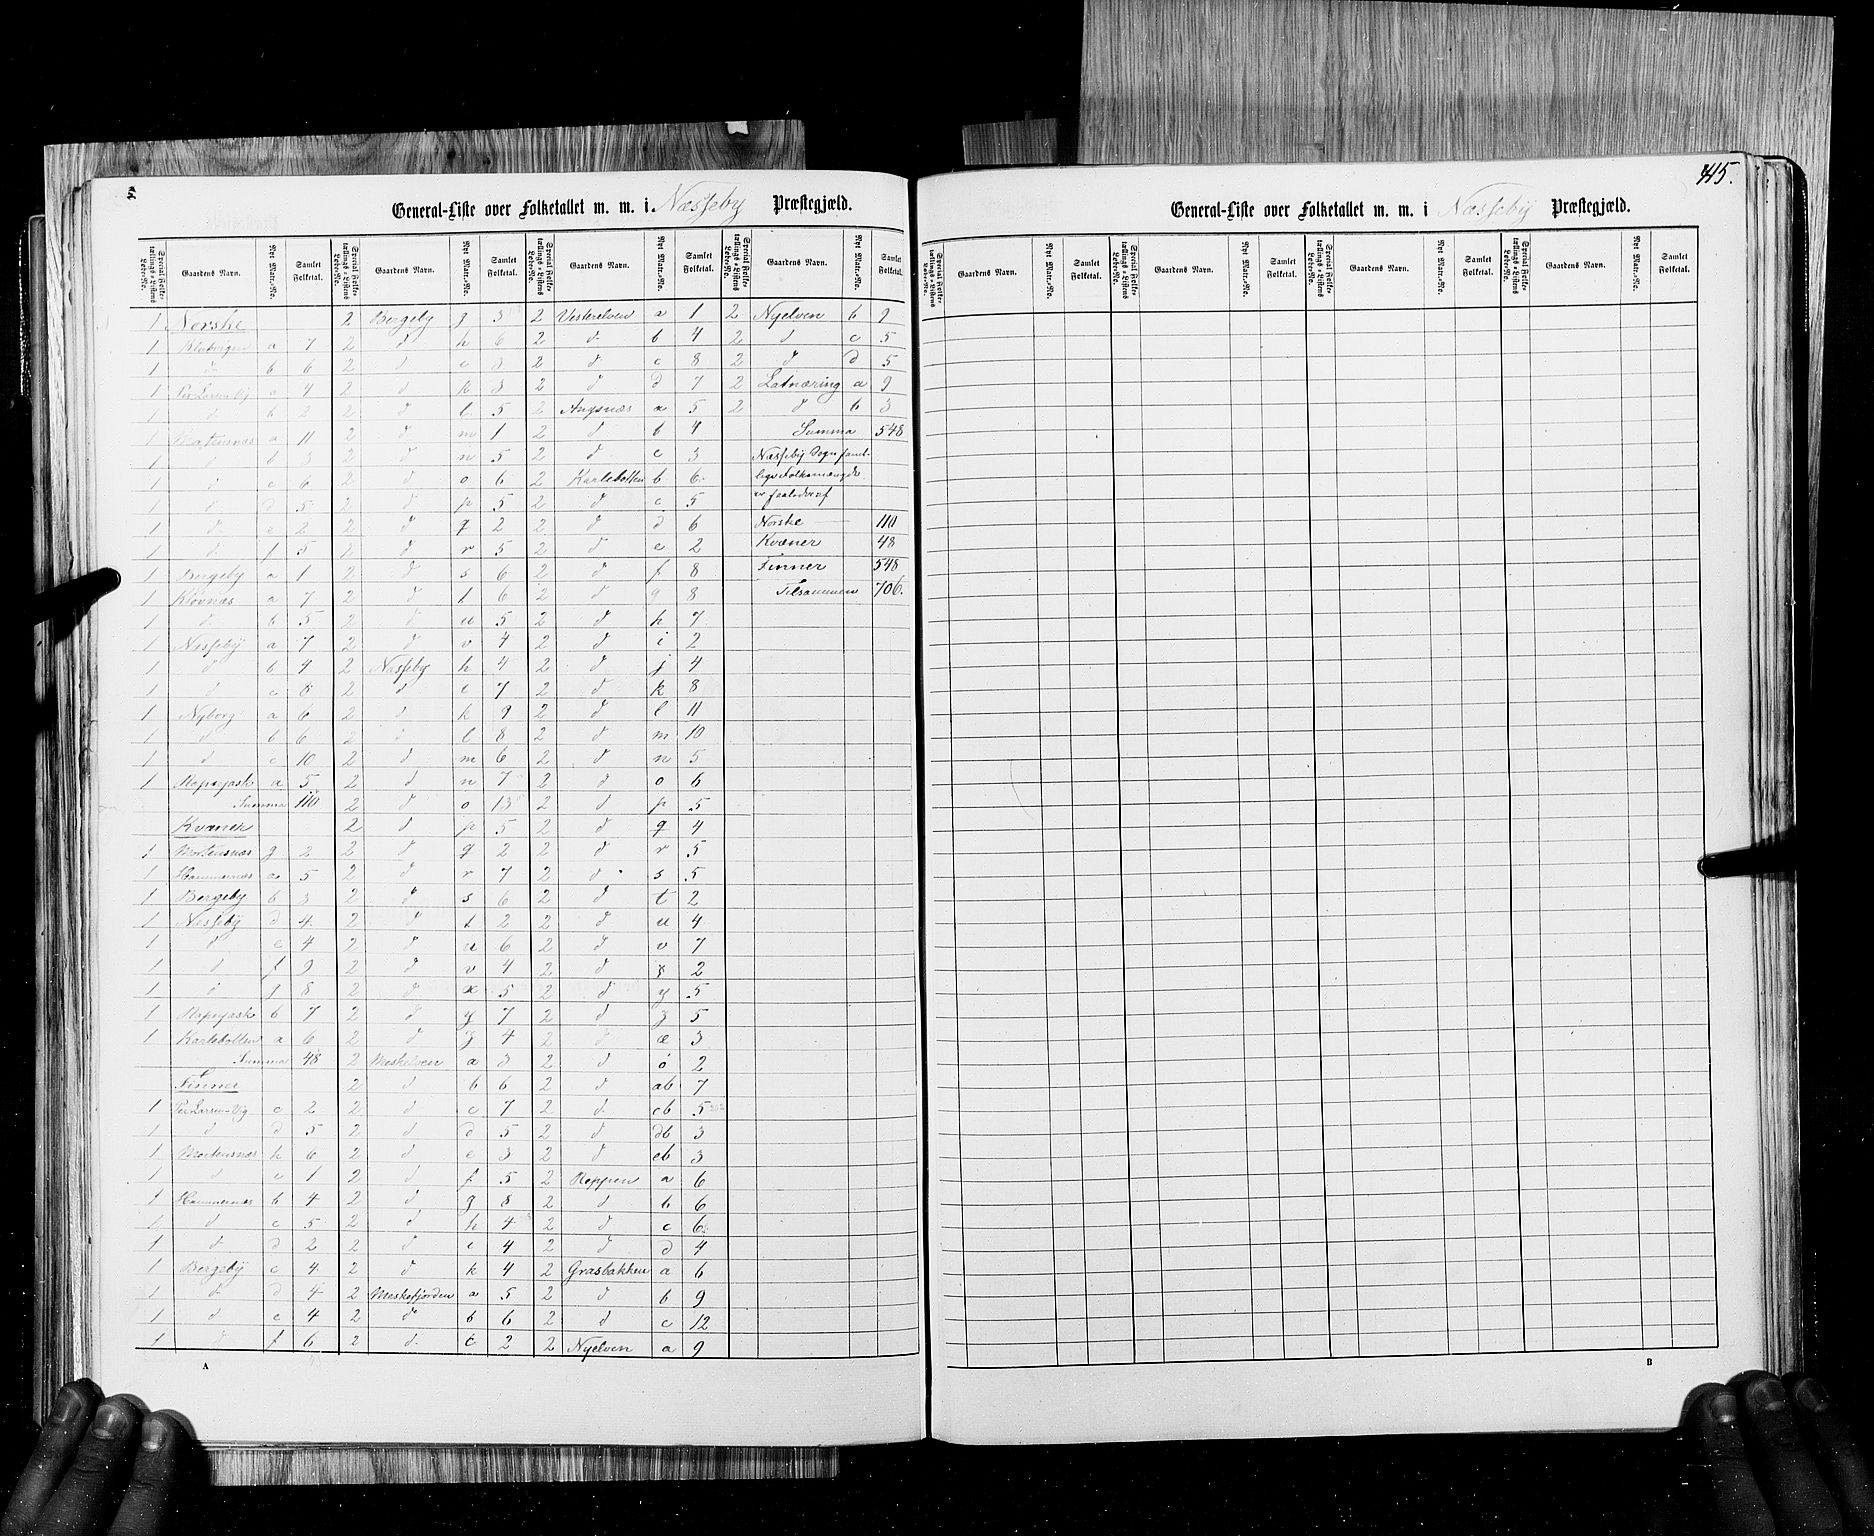 General-Liste over Folketallet m. m. i Næsseby Præstegjæld.
Special Folketællings-Listens Løbe-No. Gaardens Navn. Nyt Matr.-No. Samlet Folketal.
Special Folketællings-Listens Løbe-No. Gaardens Navn. Nyt Matr.-No. Samlet Folketal.
Special Folketællings-Listens Løbe-No. Gaardens Navn. Nyt Matr.-No. Samlet Folketal.
Special Folketællings-Listens Løbe-No. Gaardens Navn. Nyt Matr.-No. Samlet Folketal.
1 Norske
1 a 7
1 d b 6
1 a 4
1 d b 2
1 a 11
1 d b 3
1 d c 6
1 d d 5
1 d e 2
1 d f 5
1 Bergeby a 1
1 Kløvnæs a 7
1 d b 5
1 Næsseby a 7
1 d b 4
1 d c 8
1 Nyborg a 6
1 d b 6
1 d c 10
1 a 5
Summa 110
Kvæner
1 Mortensnæs g 2
1 Hammernæs a 5
1 Bergeby b 3
1 Næsseby d 4
1 d e 4
1 d f 9
1 d g 8
1 b 7
1 Karlebotten a 6
Summa 48
Finner
1 Per Larsen-Vig c 2
1 d d 5
1 Mortensnæs h 6
1 d i 1
1 Hammernæs b 4
1 d c 5
1 d d 2
1 Bergeby c 4
1 d d 4
1 d e 4
1 d f 6
A
2 Bergeby g 3
2 d h 6
2 d i 3
2 d k 3
2 d l 5
2 d m 1
2 d n 5
2 d o 6
2 d p 5
2 d q 2
2 d r 5
2 d s 6
2 d t 6
2 d u 5
2 d v 4
2 Næsseby h 4
2 d i 7
2 d k 9
2 d l 8
2 d m 6
2 d n 7
2 d o 13
2 d p 5
2 d q 2
2 d r 7
2 d s 6
2 d t 2
2 d u 6
2 d v 4
2 d x 5
2 d y 7
2 d z 4
2 Meskelven a 3
2 d b 6
2 d c 7
2 d d 5
2 d e 3
2 d f 5
2 d g 8
2 d h 4
2 d i 4
2 d k 4
2 Meskefjorden a 5
2 d b 6
2 d c 2
2 Vesterelven a 1
2 d b 4
2 d c 8
2 d d 7
2 Angsnæs a 5
2 d b 4
2 d c 3
2 Karlebotten b 6
2 d c 5
2 d d 6
2 d e 2
2 d f 8
2 d g 8
2 d h 7
2 d i 2
2 d j 4
2 d k 8
2 d l 11
2 d m 10
2 d n 5
2 d o 6
2 d p 5
2 d q 4
2 d r 5
2 d s 5
2 d t 2
2 d u 4
2 d v 7
2 d 2
2 d y 5
2 d z 5
2 d æ 3
2 d ö 2
2 d ab 7
2 d cb 5
2 d db 3
2 d eb 3
2 Reppen a 6
2 d b 6
2 d c 6
2 d d 4
2 Græsbakken a 6
2 d b 9
2 d c 12
2 Nyelven a 9
2 Nyelven b 9
2 d c 5
2 d d 5
2 Latnæring a 9
2 d b 3
Summa 548
Næsseby Sogn samt-
lige Folkemængde
er saaledes af
Norske 110
Kvæner 48
Finner 548
Tilsammen 706.
445.
General-Liste over Folketallet m. m. i Næsseby Præstegjæld.
Special Folketællings-Listens Løbe-No. Gaardens Navn. Nyt Matr.-No. Samlet Folketal.
Special Folketællings-Listens Løbe-No. Gaardens Navn. Nyt Matr.-No. Samlet Folketal.
Special Folketællings-Listens Løbe-No. Gaardens Navn. Nyt Matr.-No. Samlet Folketal.
Special Folketællings-Listens Løbe-No. Gaardens Navn. Nyt Matr.-No. Samlet Folketal.
B